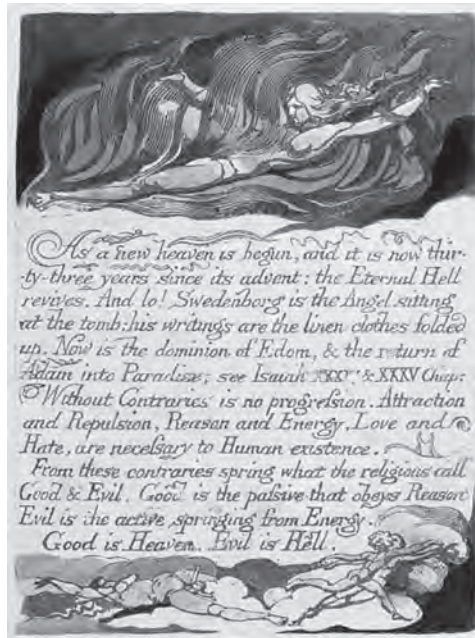 As a new heaven is begun, and it is now thir-
-ty-three years since its advent: the Eternal Hell
revives. And lo! Swedenborg is the Angel sitting
at the tomb: his writings are the linen clothes folded
up. Now is the dominion of Edom, & the return of
Adam into Paradise; see Isaiah & XXXV Chap:
Without Contraries is no progression. Attraction
and Repulsion, Reason and Energy, Love and
Hate, are necessary to Human existence.
From these contraries spring what the religious call
Good & Evil. Good is the passive that obeys Reason
Evil is the active springing from Energy.
Good is Heaven. Evil is Hell.